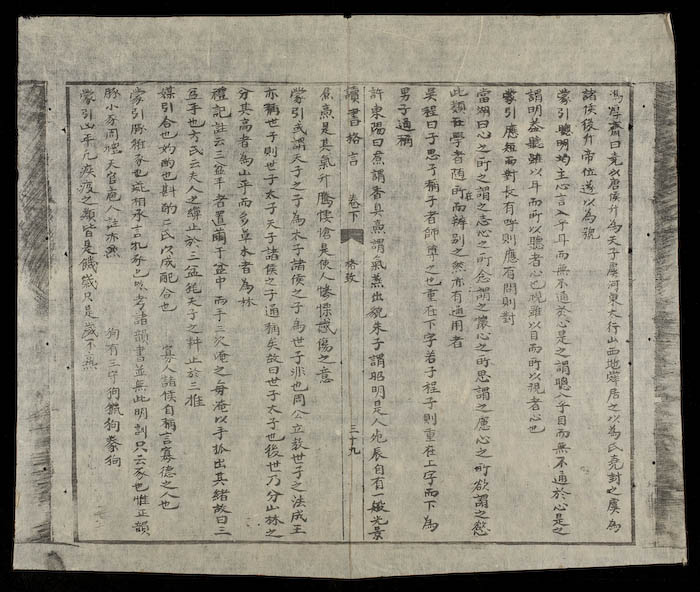 馮厚齋曰堯以唐侯升為天子虞河東大行山西地舜居之以為氏堯封之虞為
諸侯後升帝位遂以為號
蒙引聰明均主心言入乎耳而無不通於心是之謂聰入乎目而無不通於心是之
謂明蓋聽雖以耳而所以聽者心也視雖以目而所以視者心也
蒙引應短而對長有呼則應有問則對
當湖曰心之所之謂之志心之所念謂之懷心之所思謂之慮心之所欲謂之慾
此類在學者隨所在而辨別之然亦有通用者
吳程曰子思子稱子者師尊之也重在下字若子程子則重在上字而下為
男子通稱
許東陽曰焄謂香臭焄謂氣蒸出貌朱子謂昭明是人死底自有一般光景
讀書格言 卷下 格致 三十九
焄蒿是其氣升騰悽愴是使人慘慄感傷之意
蒙引或謂天子之子為太子諸侯之子為世子非也周公立教世子之法成王
亦稱世子則世子太子天子諸侯之子通稱矣故曰世子太子也後世乃分山林之
分其高者為山平而多草木者為林
禮記註云三盆手者置繭于盆中而手三次淹之每淹以手振出其緒故曰三
盆手也方氏云夫人之繅止於三盆猶天子之耕止於三推
媒引合也妁酌也斟酌二氏以成配合也 寡人諸侯自稱言寡德之人也
蒙引豚稚豕也或相承言孔豕也以考諸韻書並無此明訓只云豕也惟正韻
豚小豕周禮天官庖人註亦然 狗有三守狗獵狗豢狗
蒙引凶年凡疾疫之類皆是饑歲只是歲不熟